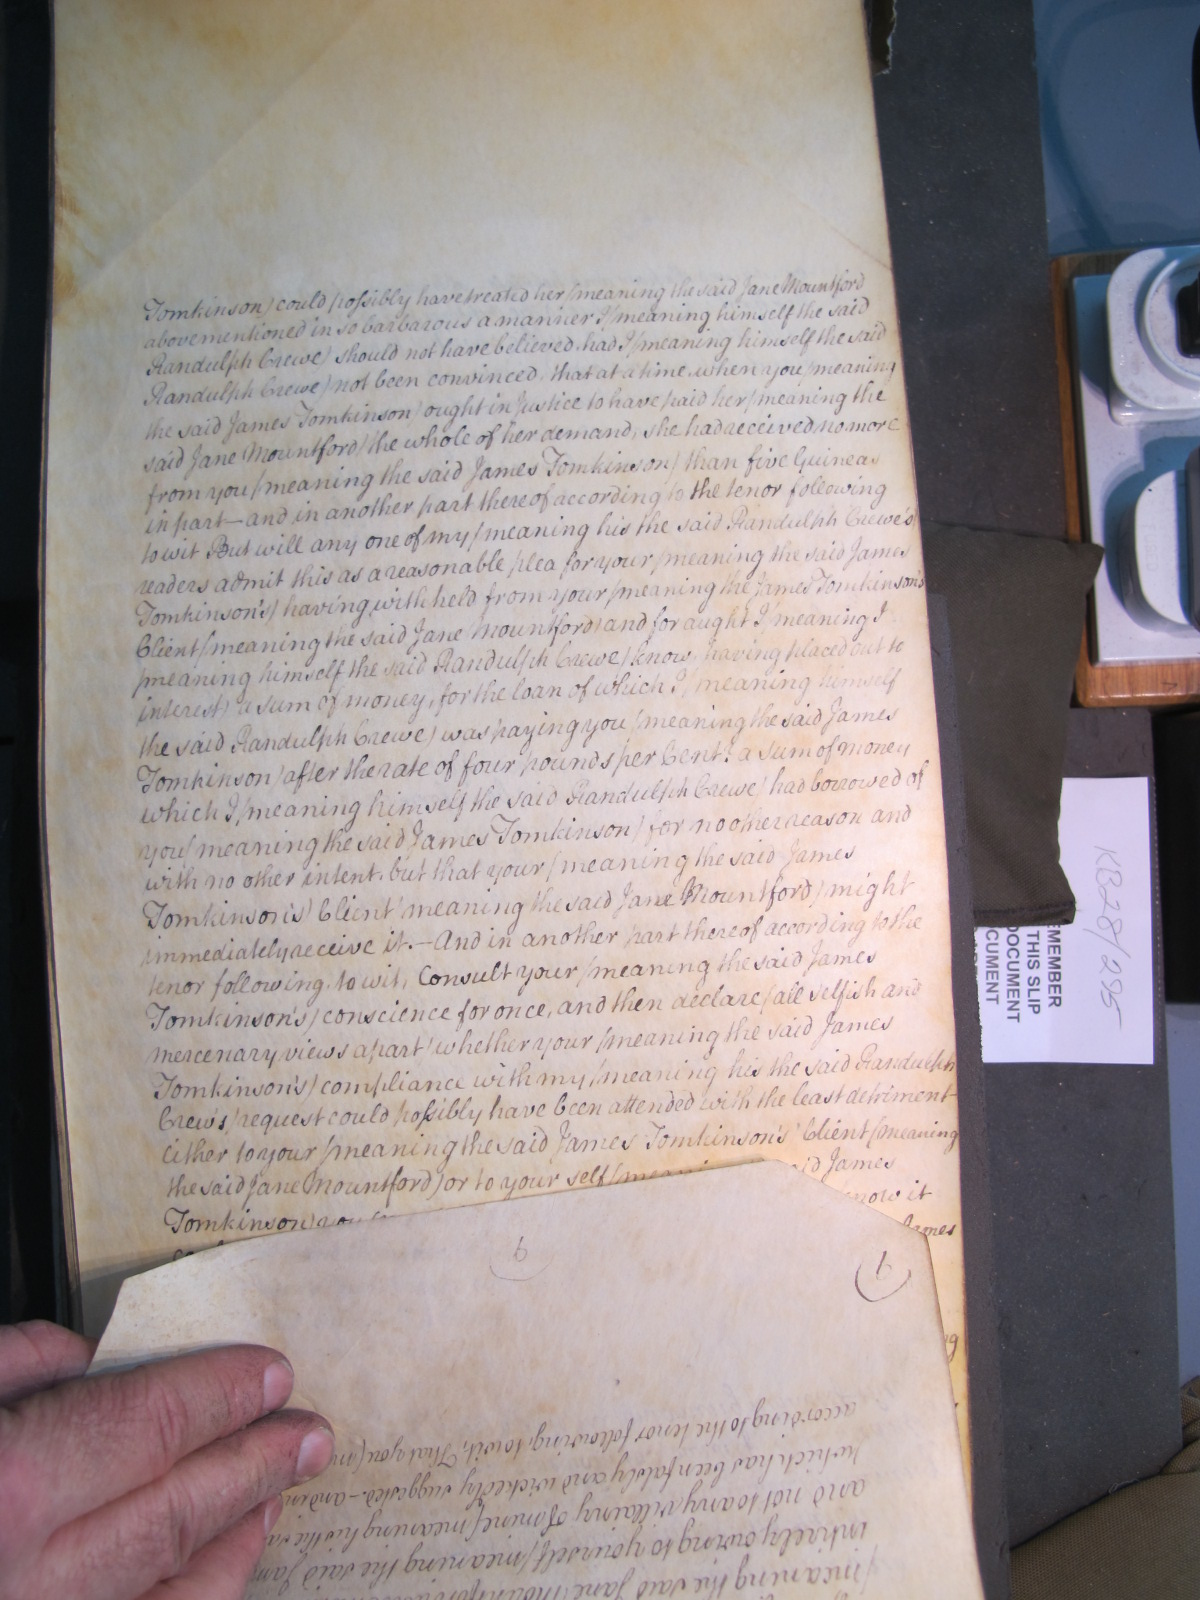 Tomkinson) could possibly have treated her (meaning the said Jane Mountford
abovementioned in so barbarous a manner I (meaning himself the said
Randulph Crewe) should not have believed, had I (meaning himself the said
Randulph Crewe) not been convinced, that at a time, when you (meaning
the said James Tomkinson) ought in Justice to have paid her (meaning the
said Jane Mountford) the whole of her demand, she had received no more
from you (meaning the said James Tomkinson) than five Guineas
in part — and in another part thereof according to the tenor following
to wit But will any one of my (meaning his the said Randulph Crewe's)
readers admit this as a reasonable plea for your (meaning the said James
Tomkinson's) having withheld from your (meaning the James Tomkinson's
Client (meaning the said Jane Mountford) and for aught I (meaning I
meaning himself the said Randulph Crewe) know, having placed out to
interest) a sum of money, for the loan of which I (meaning himself
the said Randulph Crewe) was paying you (meaning the said James
Tomkinson) after the rate of four pounds per Cent? a sum of money
which I (meaning himself the said Randulph Crewe) had borrowed of
you (meaning the said James Tomkinson) for no other reason and
with no other intent, but that your (meaning the said James
Tomkinson's) Client (meaning the said Jane Mountford) might
immediately receive it. — And in another part thereof according to the
tenor following, to wit, Consult your (meaning the said James
Tomkinson's) conscience for once, and then declare (all selfish and
mercenary views apart) whether your (meaning the said James
Tomkinson's) compliance with my (meaning his the said Randulph
Crew's) request could possibly have been attended with the least detriment
either to your (meaning the said James Tomkinson's) Client (meaning
the said Jane Mountford) or to your self (meaning said James
Tomkinson) you know it
James
6
6
according to the tenor following, to wit, That you
which has been falsly and wickedly suggested — and in
and not to any villainy of mine (meaning his the sa
intirely owing to yourself (meaning the said Jam
(meaning the said Jane Mountford
KB28/295
EMEMBER
THIS SLIP
DOCUMENT
CUMENT